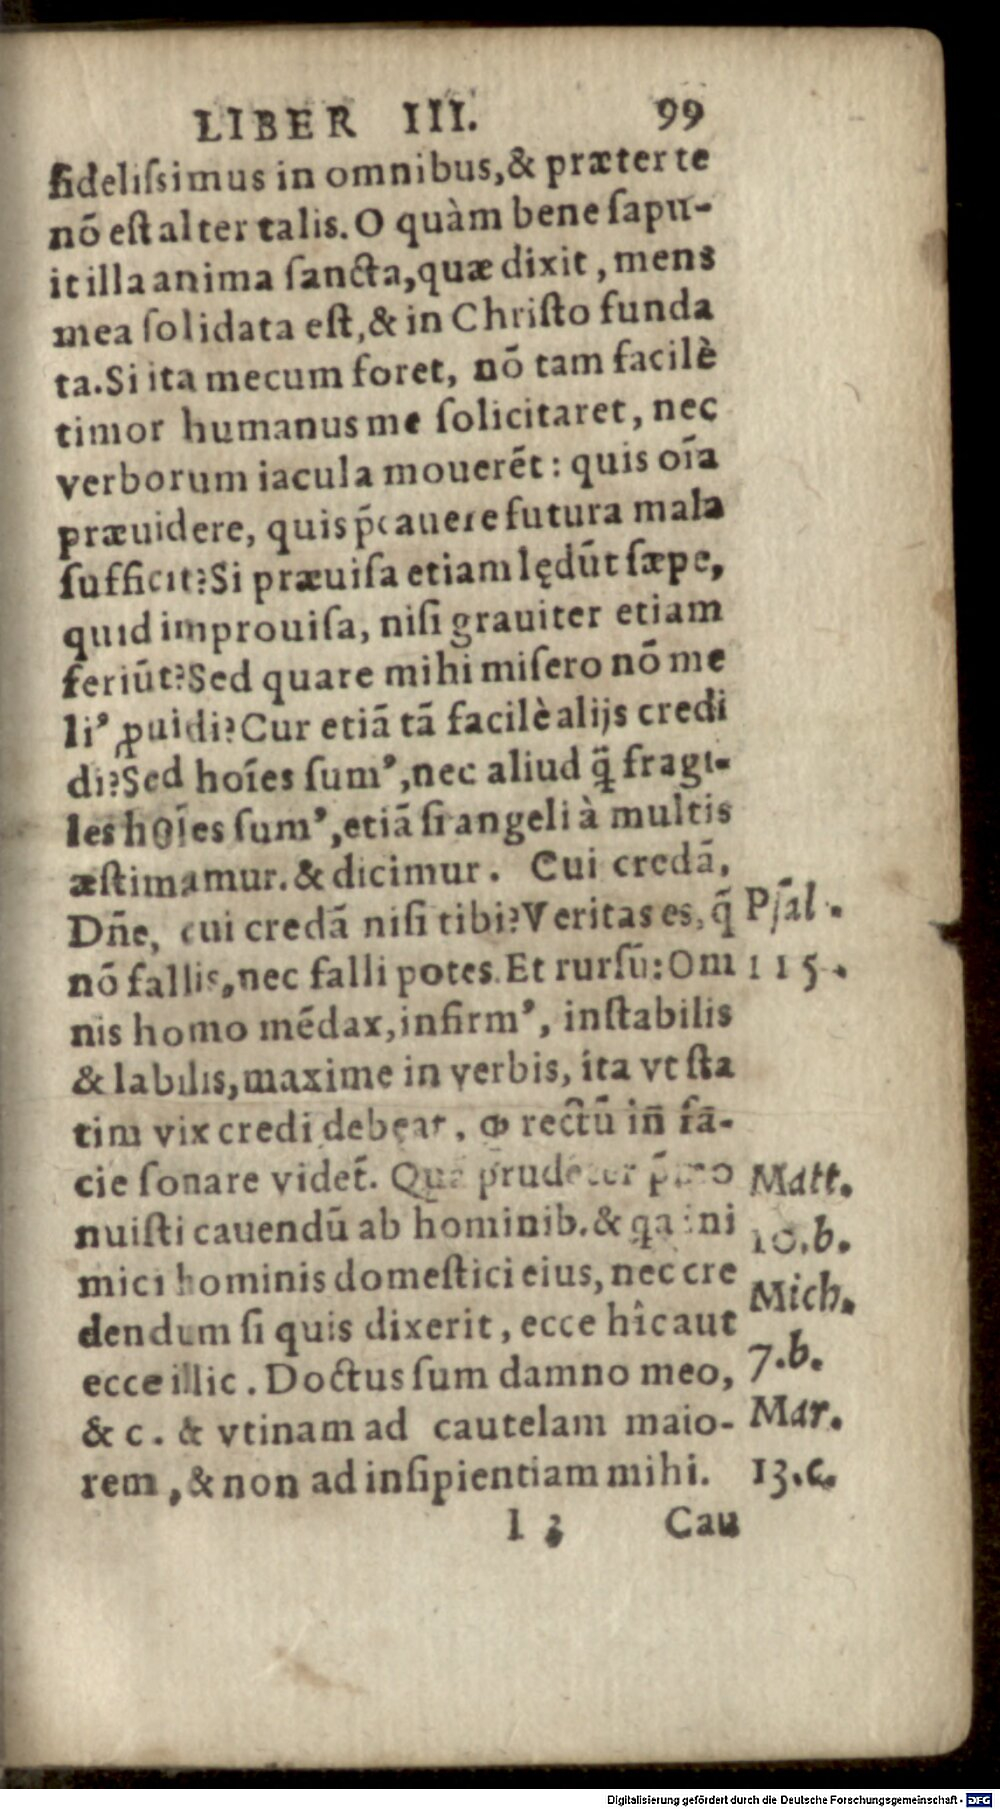 LIBER III. 99
fidelissimus in omnibus,& præter te
nõ est alter talis. O quàm bene sapu-
it illa anima sancta, quæ dixit, mens
mea solidata est,& in Christo funda
ta. Si ita mecum foret, nõ tam facilè
timor humanus me solicitaret, nec
verborum iacula mouerẽt: quis oĩa
præuidere, quis p̃cauere futura mala
sufficit? Si præuisa etiam lędũt sæpe,
quid improuisa, nisi grauiter etiam
feriũt? Sed quare mihi misero nõ me
li' ꝓuidi? Cur etiã tã facilè alijs credi
di? Sed hoĩes sum', nec aliud q̃ fragi-
les hoĩes sum', etiã si angeli à multis
æstimamur. & dicimur. Cui credã,
Dñe, cui credã nisi tibi? Veritas es, q̃ Psãl.
nõ fallis, nec falli potes. Et rursũ: Om 115.
nis homo mẽdax, infirm', instabilis
& labilis, maxime in verbis, ita vt sta
tim vix credi debeat, ꝙ rectũ in̄ fã-
cie sonare videt̃. prudẽter Matt.
nuisti cauendũ ab hominib. & qa ini 10.b.
mici hominis domestici eius, nec cre Mich.
dendum si quis dixerit, ecce hîc aut
ecce illic. Doctus sum damno meo, 7.b.
& c. & vtinam ad cautelam maio- Mar.
rem, & non ad insipientiam mihi. 13.c.
I 3 Cau
Digitalisierung gefördert durch die Deutsche Forschungsgemeinschaft - DFG